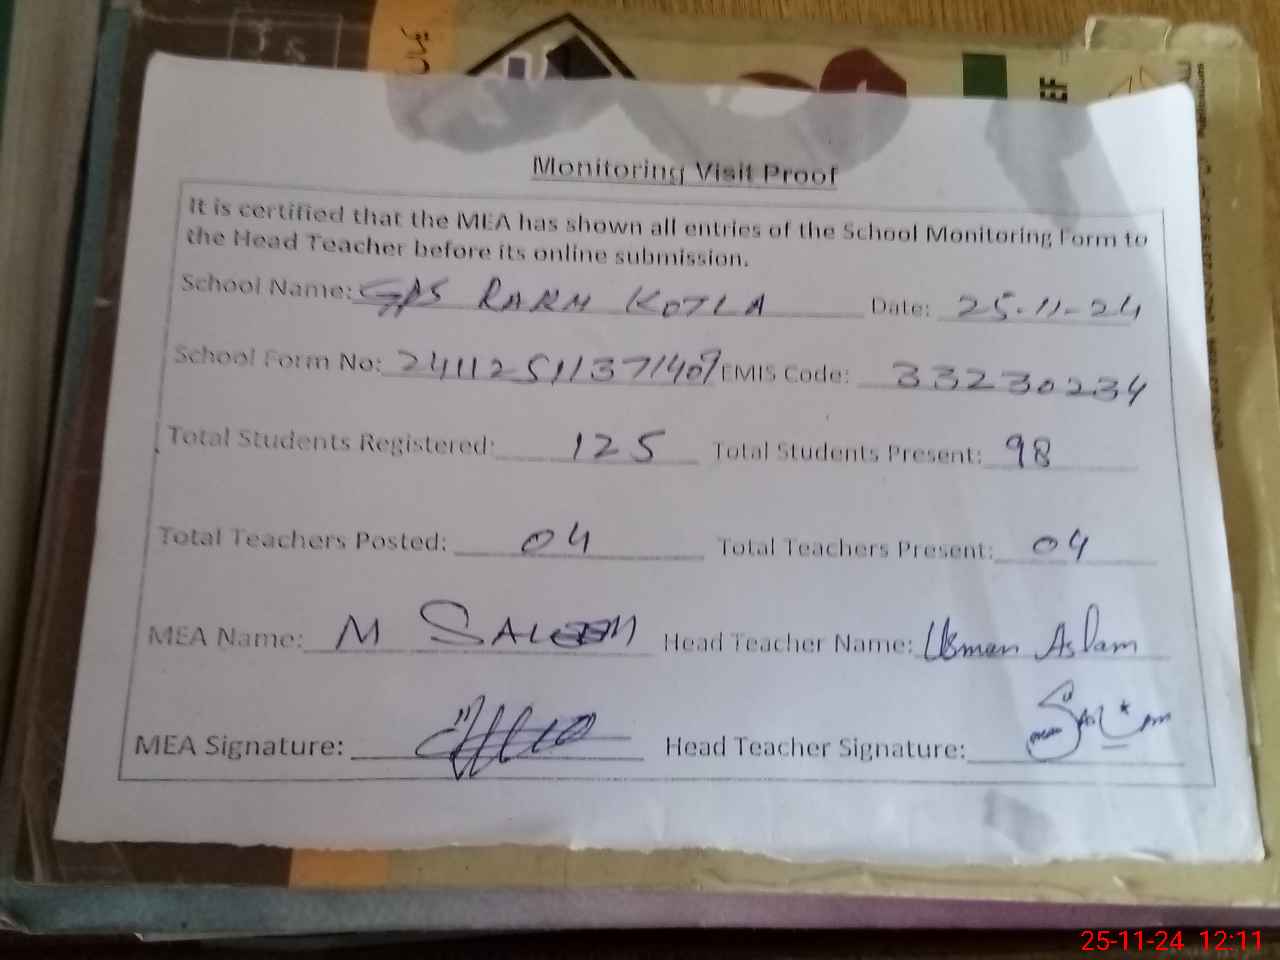 EF
Monitoring Visit Proof
It is certified that the MEA has shown all entries of the School Monitoring Form to
the Head Teacher before its online submission.
School Name: GPS RARM KOTLA Date: 25-11-24
School Form No: EMIS Code: 33230234
Total Students Registered: 125 Total Students Present: 98
Total Teachers Posted: 04 Total Teachers Present: 04
MEA Name: M SALEEM Head Teacher Name: Usman Aslam
MEA Signature: Head Teacher Signature:
25-11-24 12:11